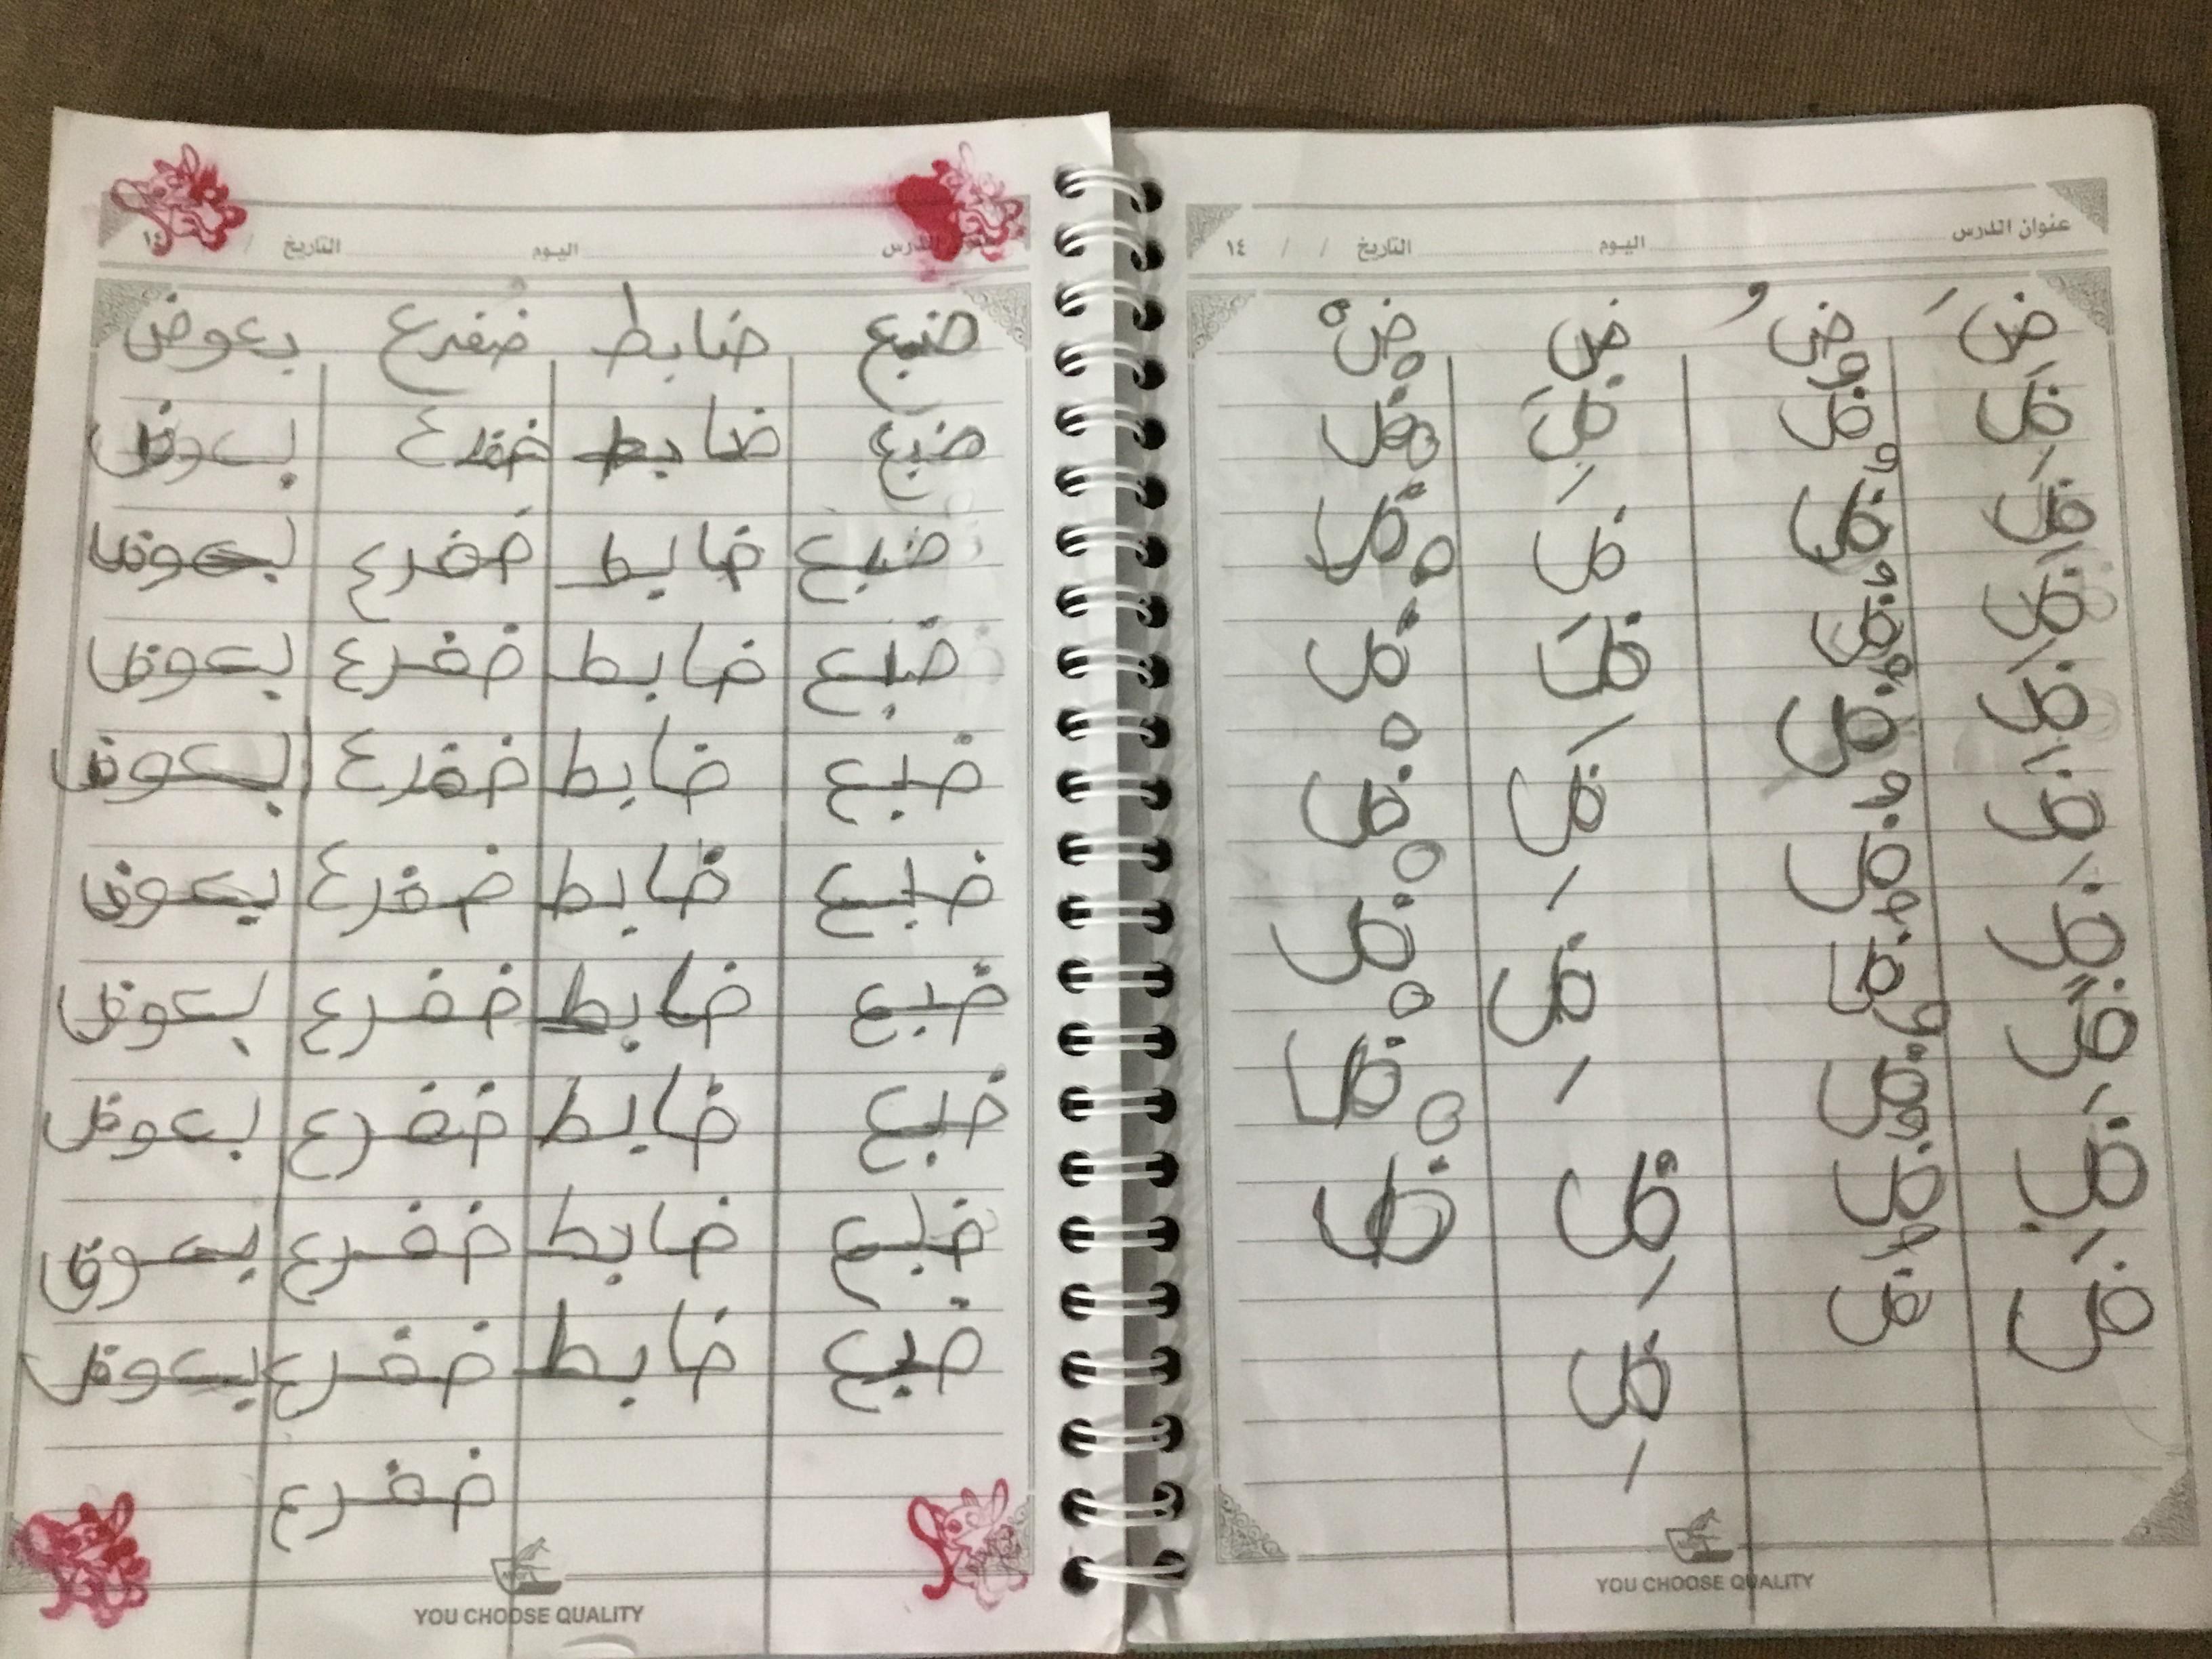 عنوان الدرس اليوم التاريخ / / ١٤
ضَ ضُ ضِ ضْ
ضَ ضُ ضِ ضْ
ضَ ضُ ضِ ضْ
ضَ ضُ ضِ ضْ
ضَ ضُ ضِ ضْ
ضَ ضُ ضِ ضْ
ضَ ضُ ضِ ضْ
ضَ ضُ ضِ ضْ
ضَ ضُ
ضَ
YOU CHOOSE QUALITY
عنوان الدرس اليوم التاريخ / ١٤
ضبع ضابط ضفدع بعوض
ضبع ضابط ضفدع بعوض
ضبع ضابط ضفدع بعوض
ضبع ضابط ضفدع بعوض
ضبع ضابط ضفدع بعوض
ضبع ضابط ضفدع بعوض
ضبع ضابط ضفدع بعوض
ضبع ضابط ضفدع بعوض
ضبع ضابط ضفدع بعوض
ضبع ضابط ضفدع بعوض
ضفدع
YOU CHOOSE QUALITY